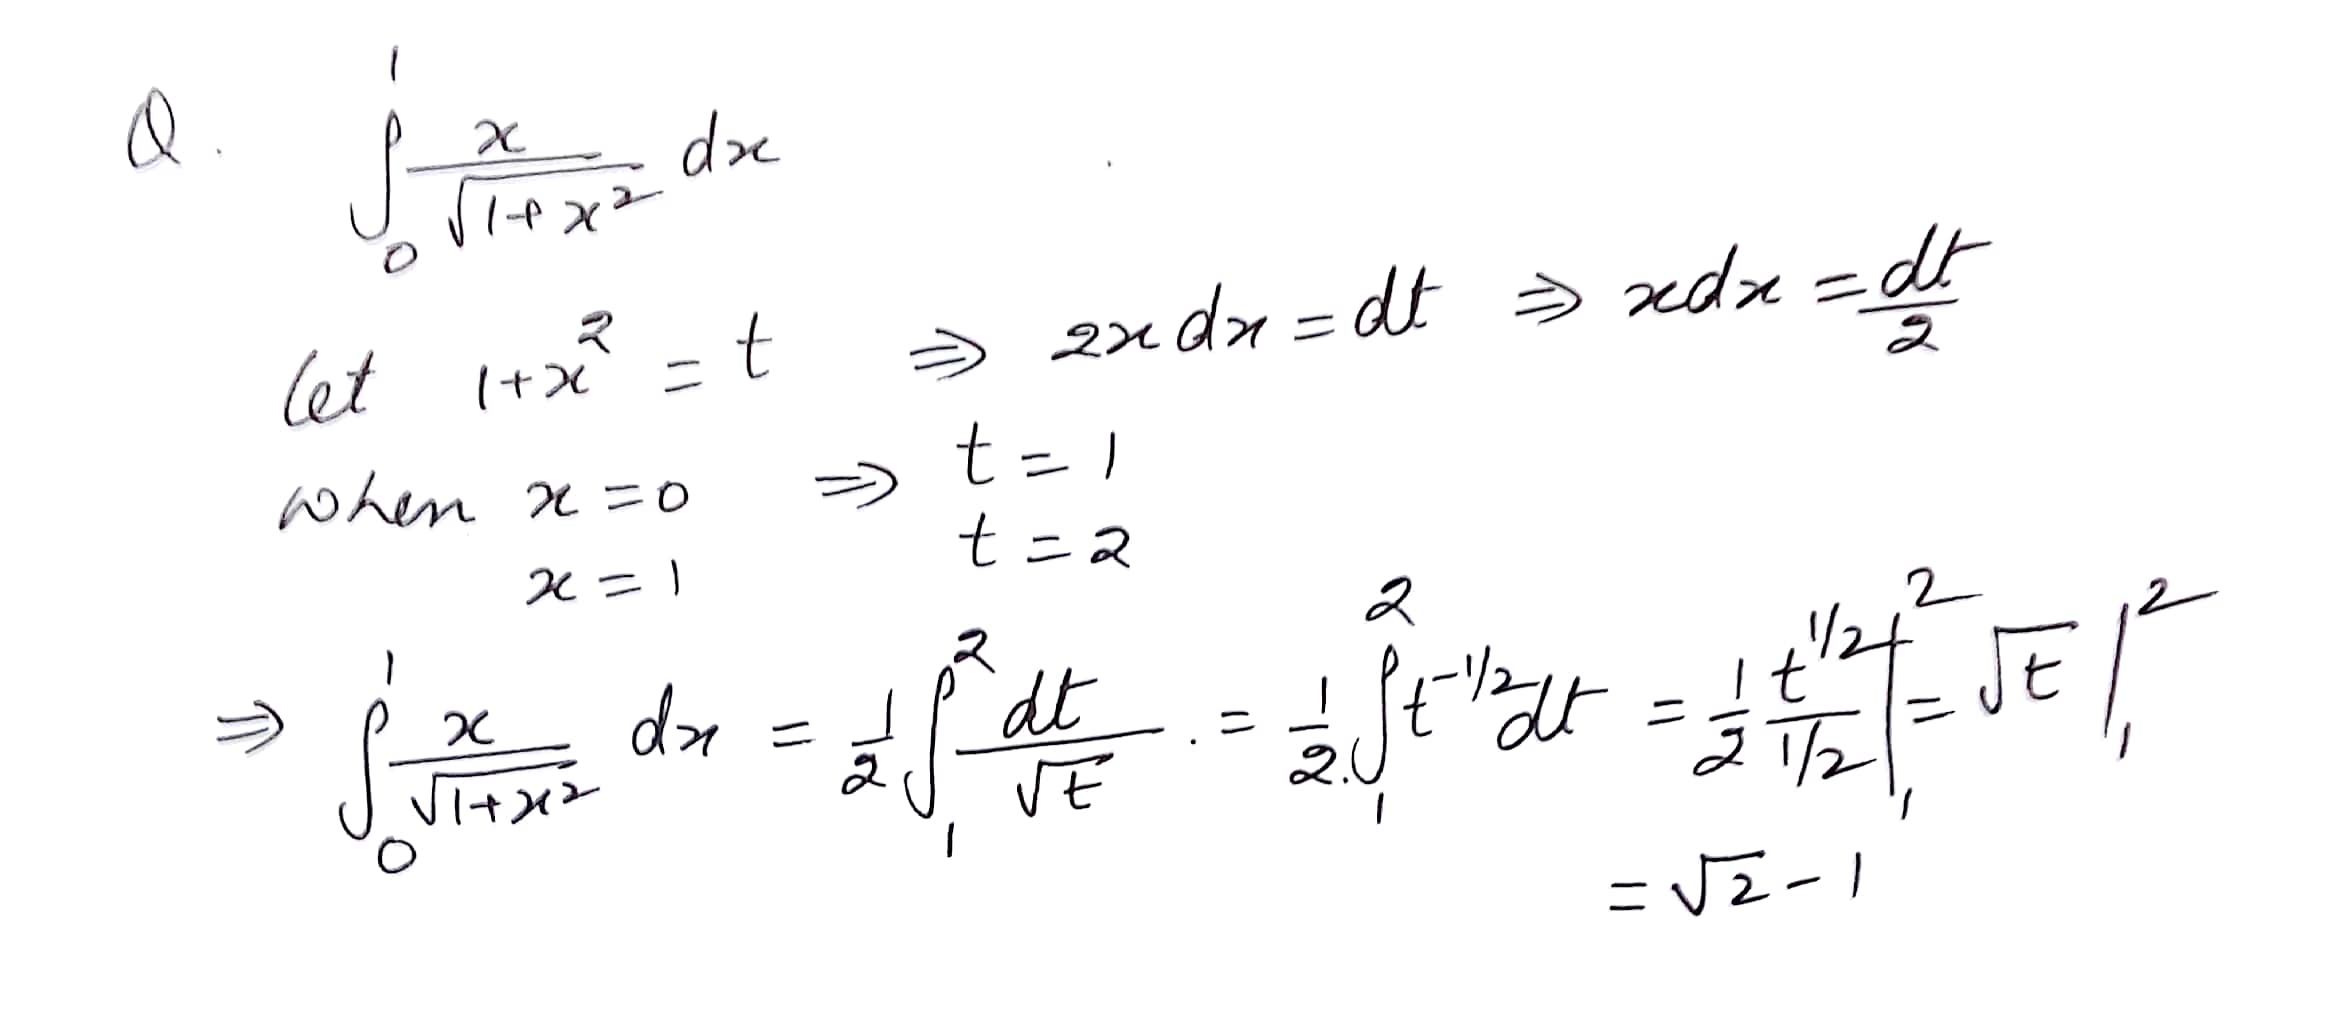 Q. ∫₀¹ x/√(1+x²) dx
let 1+x² = t ⇒ 2x dx = dt ⇒ xdx = dt/2
when x = 0 ⇒ t = 1
x = 1 t = 2
⇒ ∫₀¹ x/√(1+x²) dx = 1/2 ∫₁² dt/√t . = 1/2 . ∫₁² t^(-1/2) dt = 1/2 t^(1/2)/(1/2) |₁² = √t |₁²
= √2 - 1